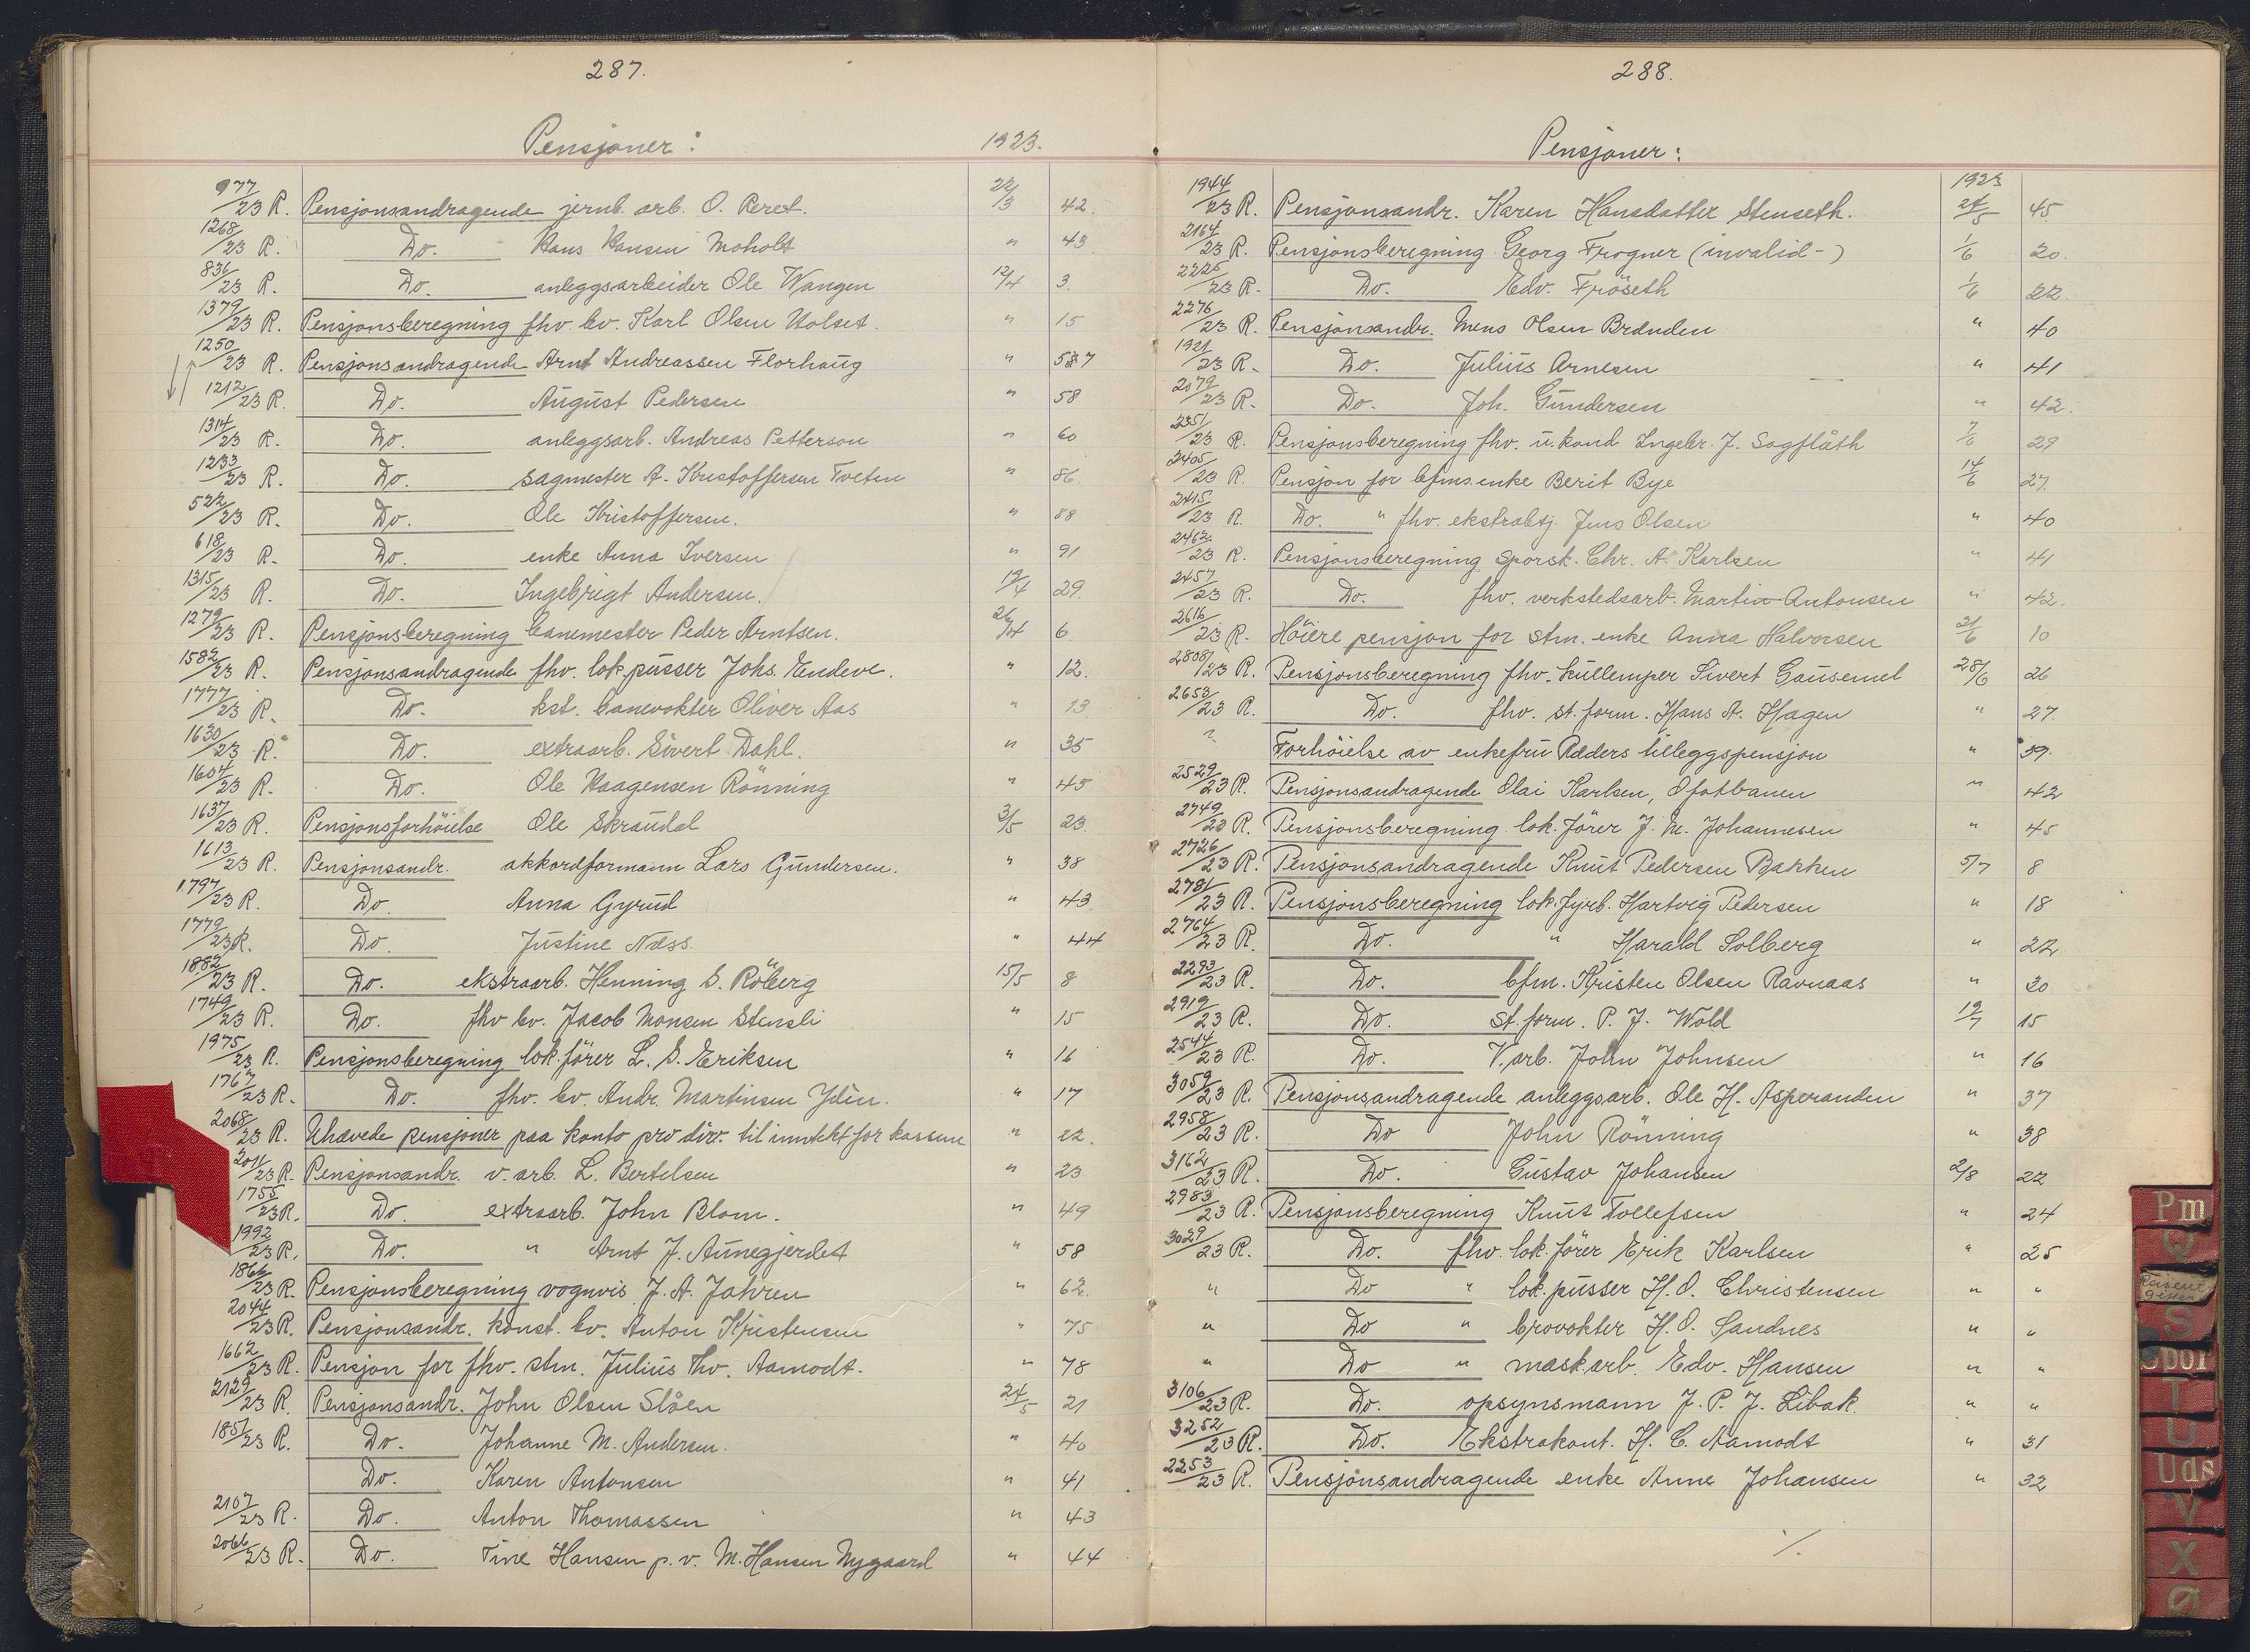 287.
Pensjoner: 1923.
977/23 R. Pensjonsandragende jernb. arb. O. Reret. 22/3 42.
1268/23 R. Do. Hans Hansen Moholt " 43
831/23 R. Do. anleggsarbeider Ole Wangen 12/4 3.
1379/23 R. Pensjonsberegning fhv. bv. Karl Olsen Holset. " 15
1250/23 R. Pensjonsandragende Arnt Andreassen Florhaug " 57
1212/23 R. Do. August Pedersen " 58
1314/23 R. Do. anleggsarb. Andreas Petterson " 60
1233/23 R. Do. sagmester A. Kristoffersen Tveten " 86.
522/23 R. Do. Ole Kristoffersen. " 88
618/23 R. Do. enke Anna Iversen " 91
1315/23 R. Do. Ingebrigt Andersen. 19/4 29.
1279/23 R. Pensjonsberegning banemester Peder Arntsen. 26/4 6
1582/23 R. Pensjonsandragende fhv. lok.pusser Johs. Endeve. " 12.
1777/23 R. Do. kst. banevokter Oliver Aas " 13
1630/23 R. Do. extraarb. Sivert Dahl. " 35
1604/23 R. Do. Ole Haagensen Rönning " 45
1637/23 R. Pensjonsforhöielse Ole Skraudal 3/5 23.
1613/23 R. Pensjonsandr. akkordformann Lars Gundersen. " 38
1797/23 R. Do. Anna Gyrud " 43
1779/23 R. Do. Justine Næss. " 44
1882/23 R. Do. ekstraarb. Henning S. Röberg 15/5 8
1749/23 R. Do. fhv bv. Jacob Monsen Stensli " 15
1975/23 R. Pensjonsberegning lok.förer L. S. Eriksen " 16
1767/23 R. Do. fhv. bv. Andr. Martinsen Ydin. " 17
2068/23 R. Uhævede pensjoner paa konto pro div. til inntekt for kassene " 22.
2011/23 R. Pensjonsandr. v. arb. L. Bertelsen " 23
1755/23 R. Do. extraarb. John Blom. " 49
1992/23 R. Do. " Arnt J. Aunegjerdet " 58
1866/23 R. Pensjonsberegning vognvis. J. A. Jahren " 62.
2044/23 R. Pensjonsandr. konst. bv. Anton Kristensen " 75
1662/23 R. Pensjon for fhv. stm. Julius Thv. Aamodt. " 78
2129/23 R. Pensjonsandr. John Olsen Slåen 24/5 21
1851/23 R. Do. Johanne M. Andersen. " 40
Do. Karen Antonsen " 41
2107/23 R. Do. Anton Thomassen " 43
2066/23 R. Do. Tine Hansen p. v. M. Hansen Nygaard " 44
288.
Pensjoner:
1923
1944/23 R. Pensjonsandr. Karen Hansdatter Stenseth. 24/5 45.
2164/23 R. Pensjonsberegning Georg Frogner (invalid-) 1/6 20.
2225/23 R. Do. Edv. Fröseth 1/6 22
2276/23 R. Pensjonsandr. Mens Olsen Brænden " 40
1921/23 R. Do. Julius Arnesen " 41
2079/23 R. Do. Joh. Gundersen " 42.
2351/23 R. Pensjonsberegning fhv. u.kond Ingebr. J. Sagflåth 7/6 29
2405/23 R. Pensjon for bfms.enke Berit Bye 14/6 27.
2415/23 R. Do. " fhv. ekstrabtj. Jens Olsen " 40
2462/23 R. Pensjonsberegning sporsk. Chr. A. Karlsen " 41
2457/23 R. Do. fhv. verkstedsarb. Martin Antonsen " 42.
2616/23 R. Höiere pensjon for stm. enke Anna Halvorsen 21/6 10
2808/23 R. Pensjonsberegning fhv. kullemper Sivert Gausemel 28/6 26
2653/23 R. Do. fhv. st. form. Hans A. Hagen " 27.
? Forhöielse av enkefru Rædders tilleggspensjon " 39.
2529/23 R. Pensjonsandragende Olai Karlsen, Ofotbanen " 42
2749/23 R. Pensjonsberegning lok. förer J. M. Johannesen " 45
2726/23 R. Pensjonsandragende Knut Pedersen Bakken 5/7 8
2781/23 R. Pensjonsberegning lok. fyrb. Hartvig Pedersen " 18
2764/23 R. Do. " Harald Solberg " 22
2293/23 R. Do. bfm. Kristen Olsen Ravnaas " 30
2919/23 R. Do. St. form. P. J. Wold 19/7 15
2544/23 R. Do. V. arb. John Johnsen " 16
3059/23 R. Pensjonsandragende anleggsarb. Ole H. Asperanden " 37
2958/23 R. Do John Rönning " 38
3162/23 R. Do. Gustav Johansen 2/8 22
2983/23 R. Pensjonsberegning Knut Tollefsen " 24
3029/23 R. Do. fhv. lok. förer Erik Karlsen " 25
" Do " lok. pusser H. O. Christensen " "
" Do " brovokter H. O. Sandnes " "
" Do " mask.arb. Edv. Hansen " "
3106/23 R. Do. opsynsmann J. P. J. Libak. " "
3252/23 R. Do. Ekstrakont. H. C. Aamodt " 31
2253/23 R. Pensjonsandragende enke Anne Johansen " 32
./.
Pm
Q
S
Spor
T
U
Uds
V
X
Ø